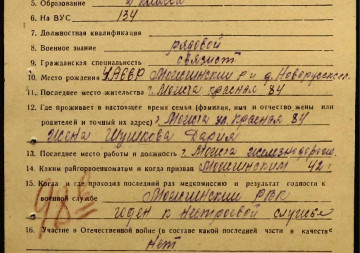 5. Образование 2 класса
6. На ВУС 134
7. Должностная квалификация
8. Военное звание рядовой
9. Гражданская специальность связист
10. Место рождения УАССР Можгинский р-н д. Новорусског
11. Последнее место жительства г. Можга Красная 84
12. Где проживает в настоящее время семья (фамилия, имя и отчество жены или
родителей и точный их адрес) г. Можга ул Красная 84
жена Шушкова Дария
13. Последнее место работы и должность г. Можга железнодорож
14. Каким райгорвоенкоматом и когда призван Можгинским 42 г
15. Когда и где проходил последний раз медкомиссию и результат годности к
военной службе Можгинский РВК
98в
годен к нестроевой службе
16. Участие в Отечественной войне (в составе какой последней части в качестве
нет